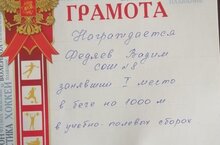 ГРАМОТА
Награждается
Федяев Вадим
СОШ №8
занявший I место
в беге на 1000 м
в учебно-полевых сборах
ХОККЕЙ